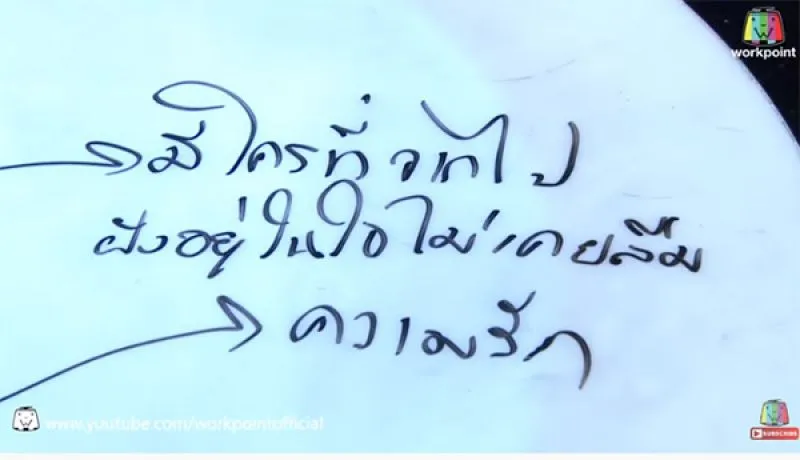 workpoint
มีใครที่จากไป
ฝังอยู่ในใจไม่เคยลืม
ความรัก
www.youtube.com/workpointofficial
SUBSCRIBE